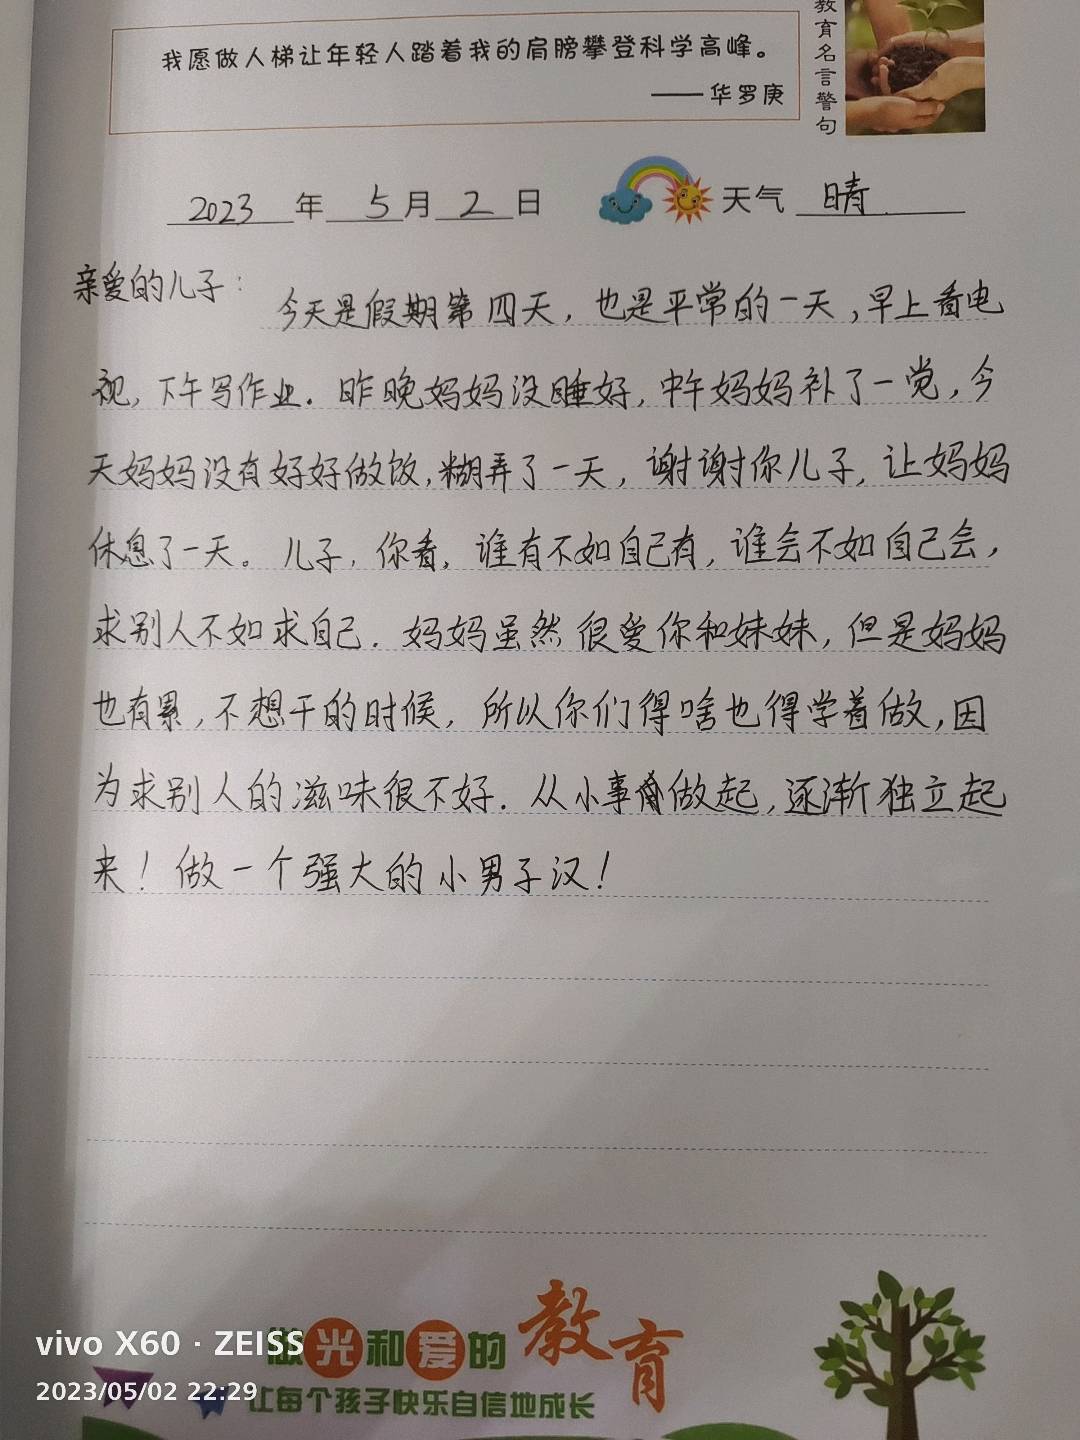 教育名言警句
我愿做人梯让年轻人踏着我的肩膀攀登科学高峰。
——华罗庚
2023年5月2日 天气 晴.
亲爱的儿子：
今天是假期第四天，也是平常的一天，早上看电
视，下午写作业．昨晚妈妈没睡好，中午妈妈补了一觉，今
天妈妈没有好好做饭，糊弄了一天，谢谢你儿子，让妈妈
休息了一天。儿子，你看，谁有不如自己有，谁会不如自己会，
求别人不如求自己．妈妈虽然很爱你和妹妹，但是妈妈
也有累，不想干的时候，所以你们得啥也得学着做，因
为求别人的滋味很不好．从小事做起，逐渐独立起
来！做一个强大的小男子汉！
做光和爱的教育
让每个孩子快乐自信地成长
vivo X60 · ZEISS
2023/05/02 22:29